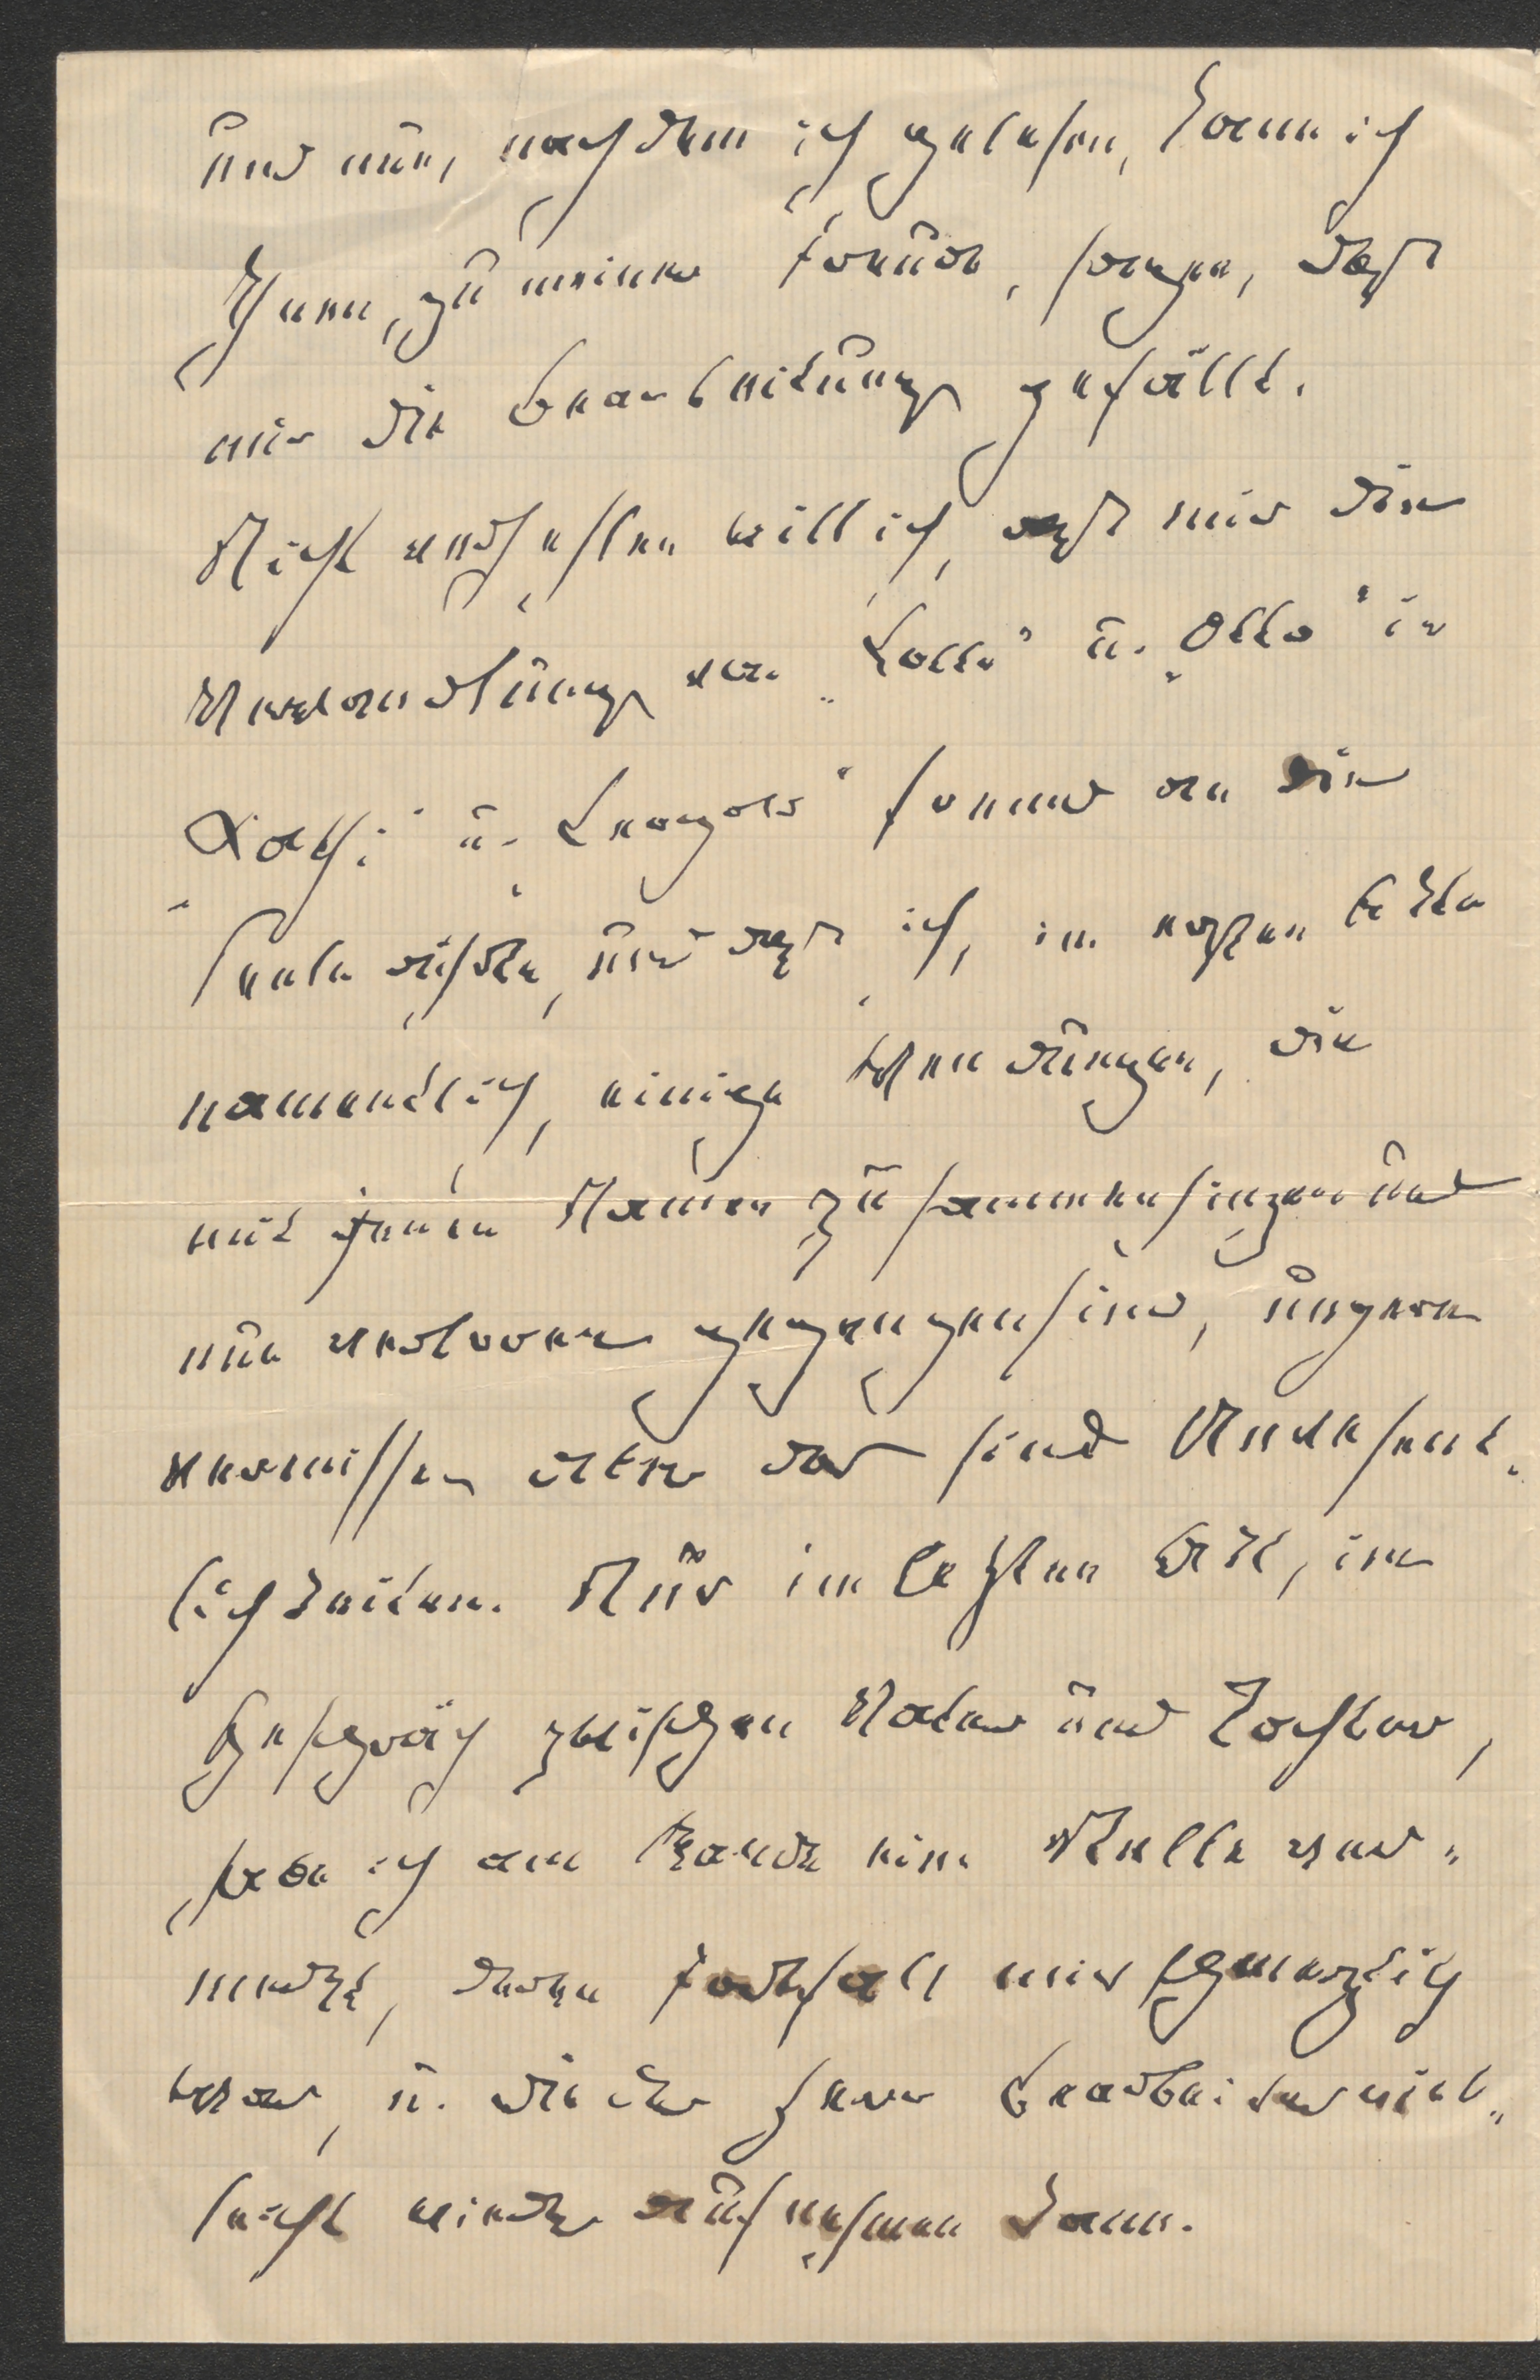 und nun, nachdem ich gelesen, kann ich
Ihnen, zu meiner Freude, sagen, daß
mir die Bearbeitung gefällt.
Nicht verhehlen will ich, daß mir die
Verwandlung von „Lotte" u. „Otto" in
„Kathi" u. „Leopold" fremd an die
Seele rührte, und daß ich, im ersten Akte
namentlich, einige Wendungen, die
mit jenen Namen zusammenhingen und
nun verloren gegangen sind, ungern
vermisse, aber das sind Unwesent-
lichkeiten. Nur im letzten Akt, im
Gespräch zwischen Vater und Tochter,
habe ich am Rande eine Stelle ver-
merkt, deren Fortfall mir schmerzlich
war, u. die der Herr Bearbeiter viel-
leicht wieder aufnehmen kann.